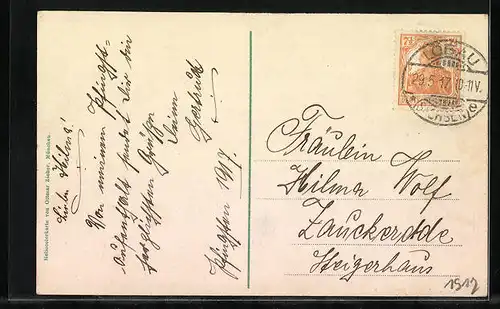 Liebe Hilma!
Von meinem Pfingst-
aufenthalt sendet Dir die
herzlichsten Grüße
Deine
Gertrud
Pfingsten 1917
Heliocolorkarte von Ottmar Zieher, München.
7½
LÖBAU
29.5.17.10-11V.
(SACHSEN) c
Fräulein
Hilma Wolf
Zauckerode
Steigerhaus
1917